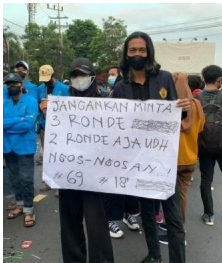 JANGANKAN MINTA
3 RONDE
2 RONDE AJA UDH
NGOS-NGOSAN...!
"69 "18"